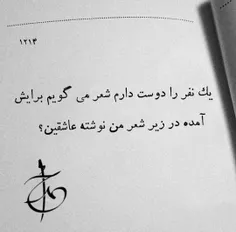 ۱۲۱۴
یك نفر را دوست دارم شعر می گویم برایش
آمده در زیر شعر من نوشته عاشقین؟